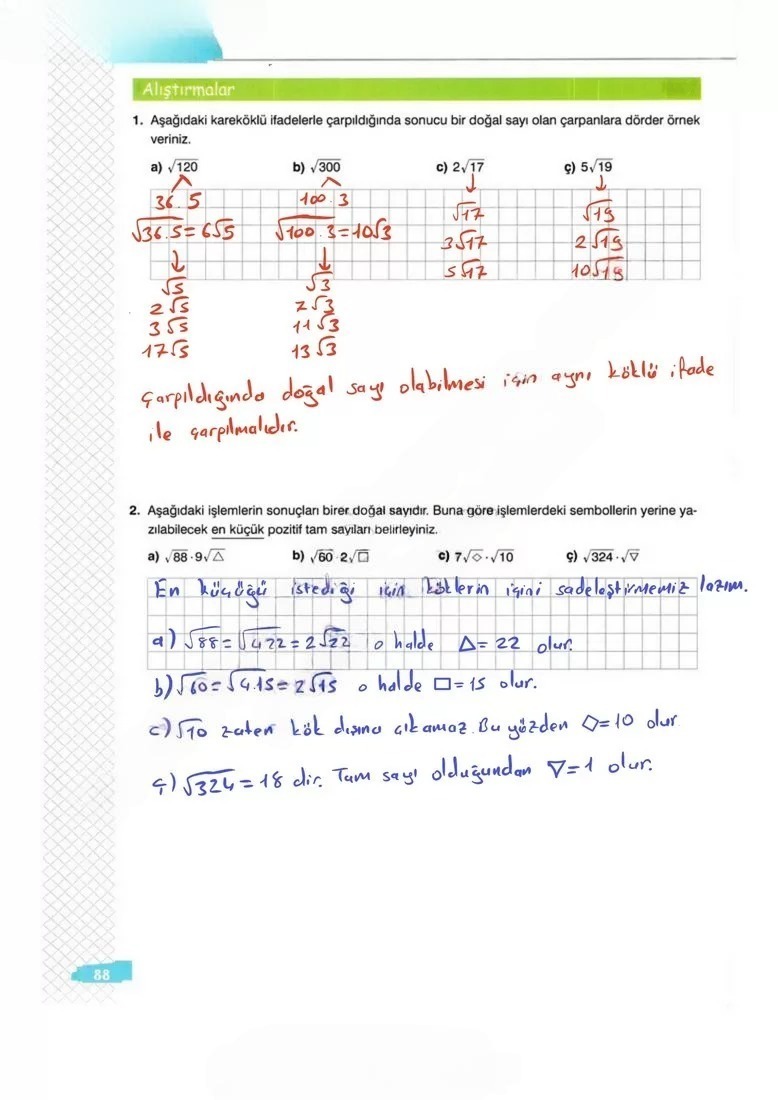 Alıştırmalar
1. Aşağıdaki kareköklü ifadelerle çarpıldığında sonucu bir doğal sayı olan çarpanlara dörder örnek
veriniz.
a) √120 b) √300 c) 2√17 ç) 5√19
36.5 100.3 √17 √19
√36.5 = 6√5 √100.3 = 10√3 3√17 2√19
√5 √3 5√17 10√19
2√5 2√3
3√5 11√3
17√5 13√3
Çarpıldığında doğal sayı olabilmesi için aynı köklü ifade
ile çarpılmalıdır.
2. Aşağıdaki işlemlerin sonuçları birer doğal sayıdır. Buna göre işlemlerdeki sembollerin yerine ya-
zılabilecek en küçük pozitif tam sayıları belirleyiniz.
a) √88·9√△ b) √60·2√□ c) 7√◇·√10 ç) √324·√▽
En küçüğü istediği için köklerin içini sadeleştirmemiz lazım.
a) √88 = √4.22 = 2√22 o halde △= 22 olur.
b) √60 = √4.15 = 2√15 o halde □=15 olur.
c) √10 zaten kök dışına çıkamaz. Bu yüzden ◇=10 olur
ç) √324 = 18 dir. Tam sayı olduğundan ▽=1 olur.
88